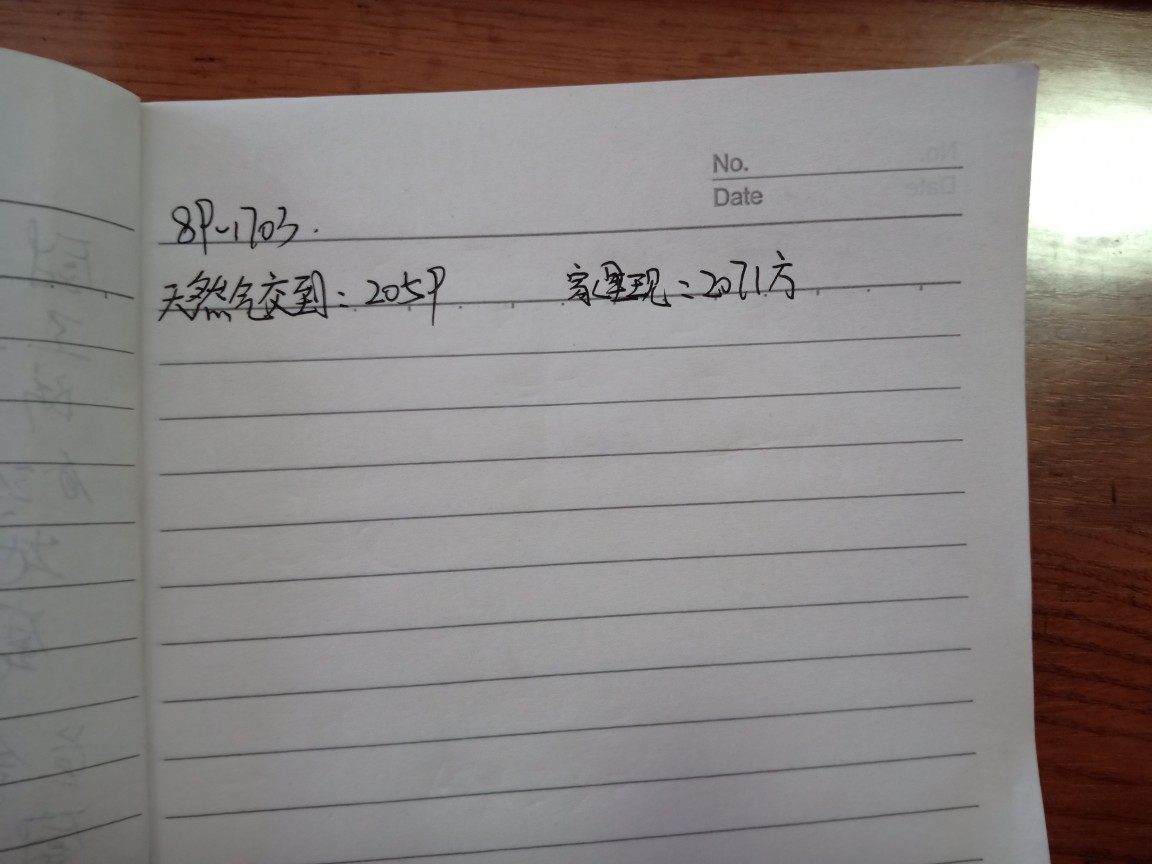 No.
Date
89-1703.
天然气交到：2059 家里现：2071方